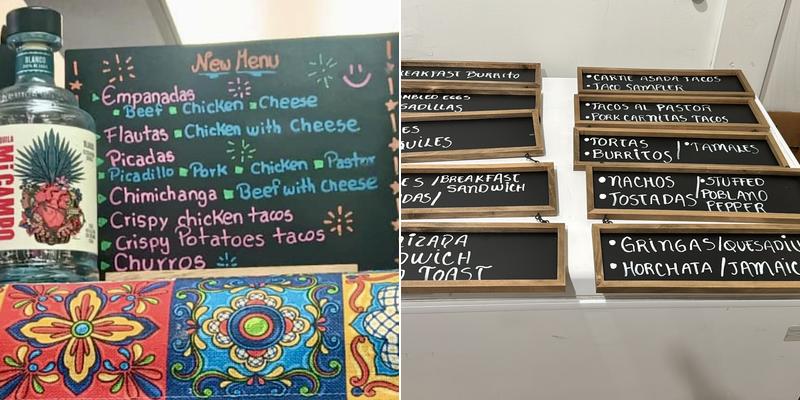 BLANCO
MiCAMPO
New Menu
Empanadas
Beef Chicken Cheese
Flautas Chicken with Cheese
Picadas
Picadillo Pork Chicken Pastor
Chimichanga Beef with cheese
Crispy chicken tacos
Crispy Potatoes tacos
Churros
EAKFAST BURRITO
MBLED EGGS
SADILLAS
ES
UILES
ES /BREAKFAST
SANDWICH
DAS/
RIZADA
DWICH
TOAST
• CARNE ASADA TACOS
• TACO SAMPLER
• TACOS AL PASTOR
• PORK CARNITAS TACOS
• TORTAS / • TAMALES
BURRITOS
• NACHOS /• STUFFED
• TOSTADAS POBLANO
PEPPER
• GRINGAS/QUESADIL
• HORCHATA /JAMAIC